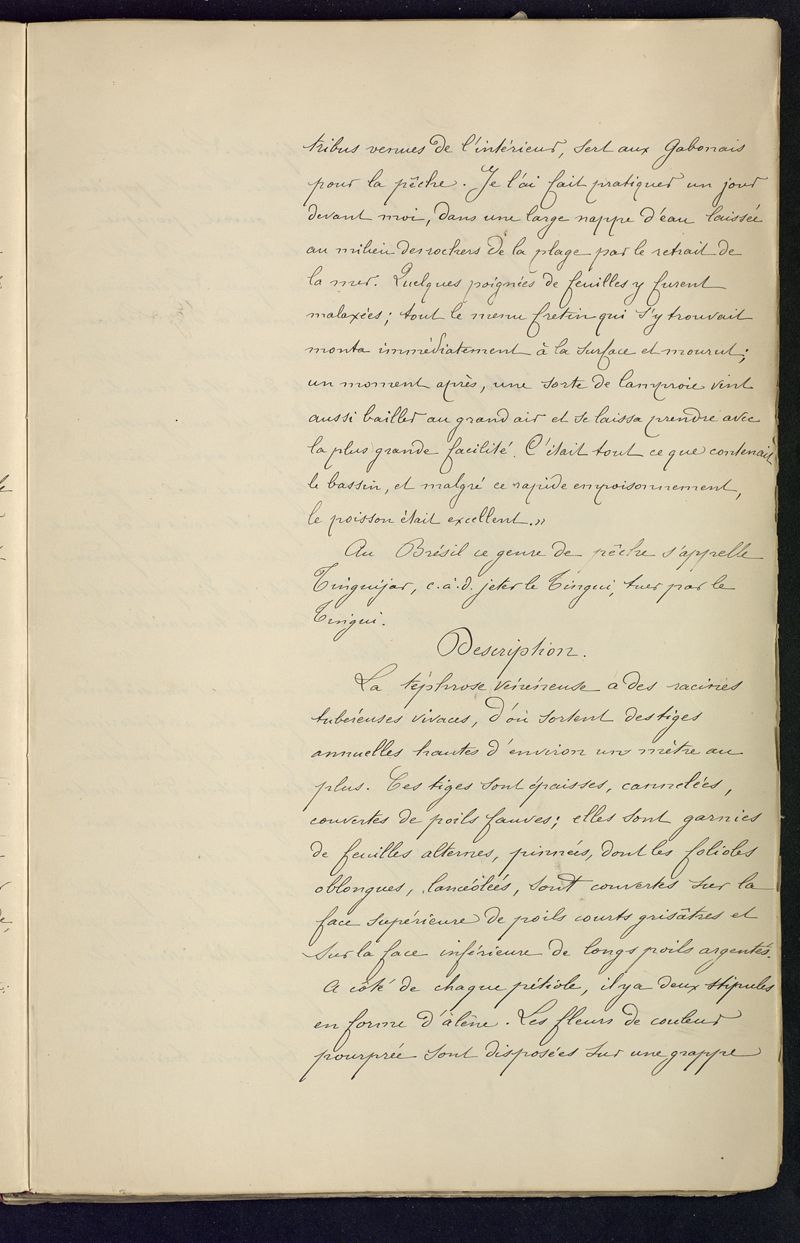 tribus venues de l'intérieur, sert aux Gabonais
pour la pêche. Je l'ai fait pratiquer un jour
devant moi, dans une large nappe d'eau laissée
au milieu des rochers de la plage par le retrait de
la mer. Quelques poignées de feuilles y furent
malaxées; tout le menu fretin qui s'y trouvait
monta immédiatement à la surface et mourut;
un moment après, une sorte de lamproie vint
aussi bailler au grand air et se laissa prendre avec
la plus grande facilité. C'était tout ce que contenait
le bassin, et malgré ce rapide empoisonnement,
le poisson était excellent.»
Au Brésil ce genre de pêche s'appelle
Tinguijar, c.à.d. jeter le Tingui, tuer par le
Tingui.
Description.
La téphrose vénéneuse a des racines
tubéreuses vivaces, d'où sortent des tiges
annuelles hautes d'environ un mètre au
plus. Ces tiges sont épaisses, cannelées,
couvertes de poils fauves; elles sont garnies
de feuilles alternes, pinnées, dont les folioles
oblongues, lancéolées, sont couvertes sur la
face supérieure de poils courts grisâtres et
sur la face inférieure de longs poils argentés.
A côté de chaque pétiole, il y a deux stipules
en forme d'âlène. Les fleurs de couleur
pourprée sont disposées sur une grappe